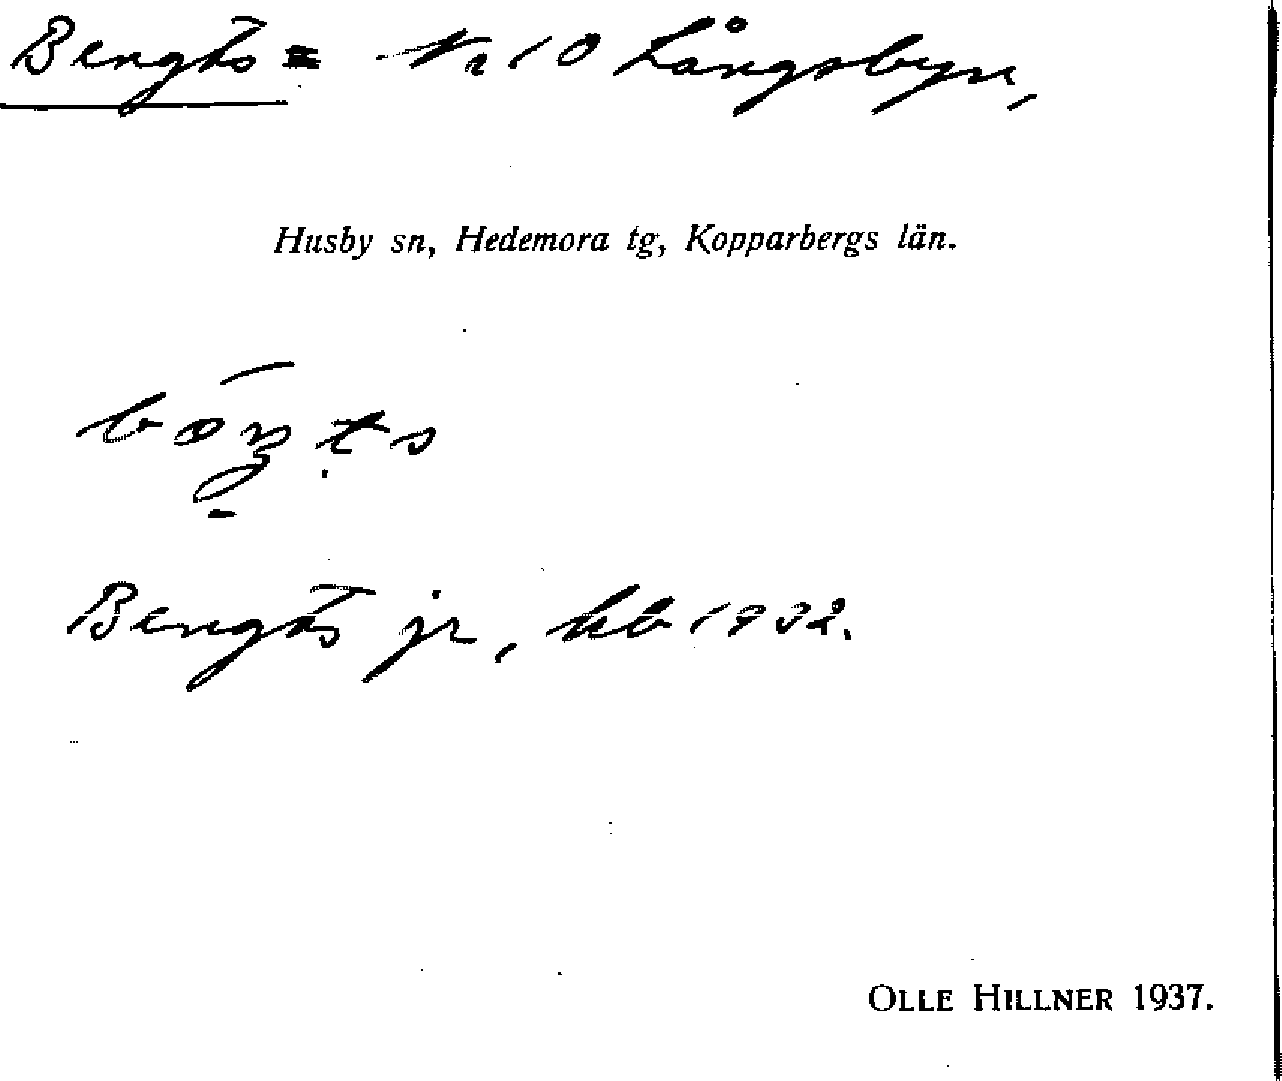 Bengts = Nr 10 Långsbyn,
Husby sn, Hedemora tg, Kopparbergs län.
Bengts jr, kb 1932.
OLLE HILLNER 1937.